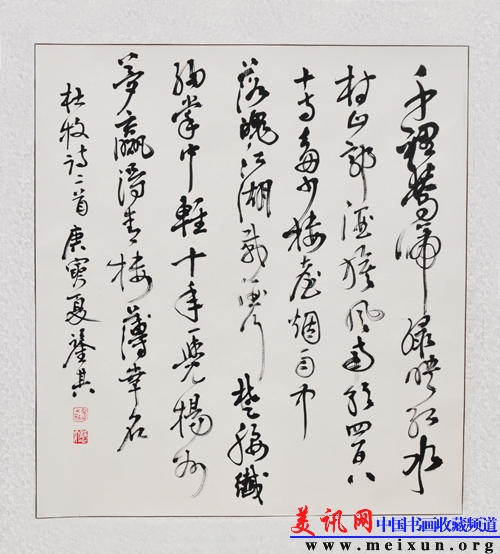 千裡鶯啼緑映红水
村山郭酒旗风南朝四百八
十寺多少楼臺烟雨中
落魄江湖载酒行 楚腰纖
细掌中軽十年一覺揚州
夢赢得青楼薄幸名
杜牧诗二首 庚寅夏 其
美讯网 中国书画收藏频道
www.meixun.org